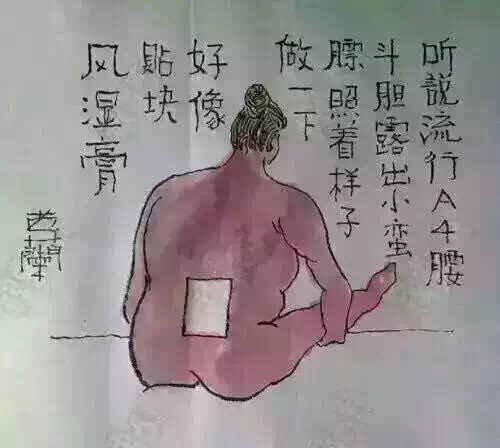 听説流行A4腰
斗胆露出小蛮
膘照着样子
做一下
好像
貼块
风湿膏
蘭